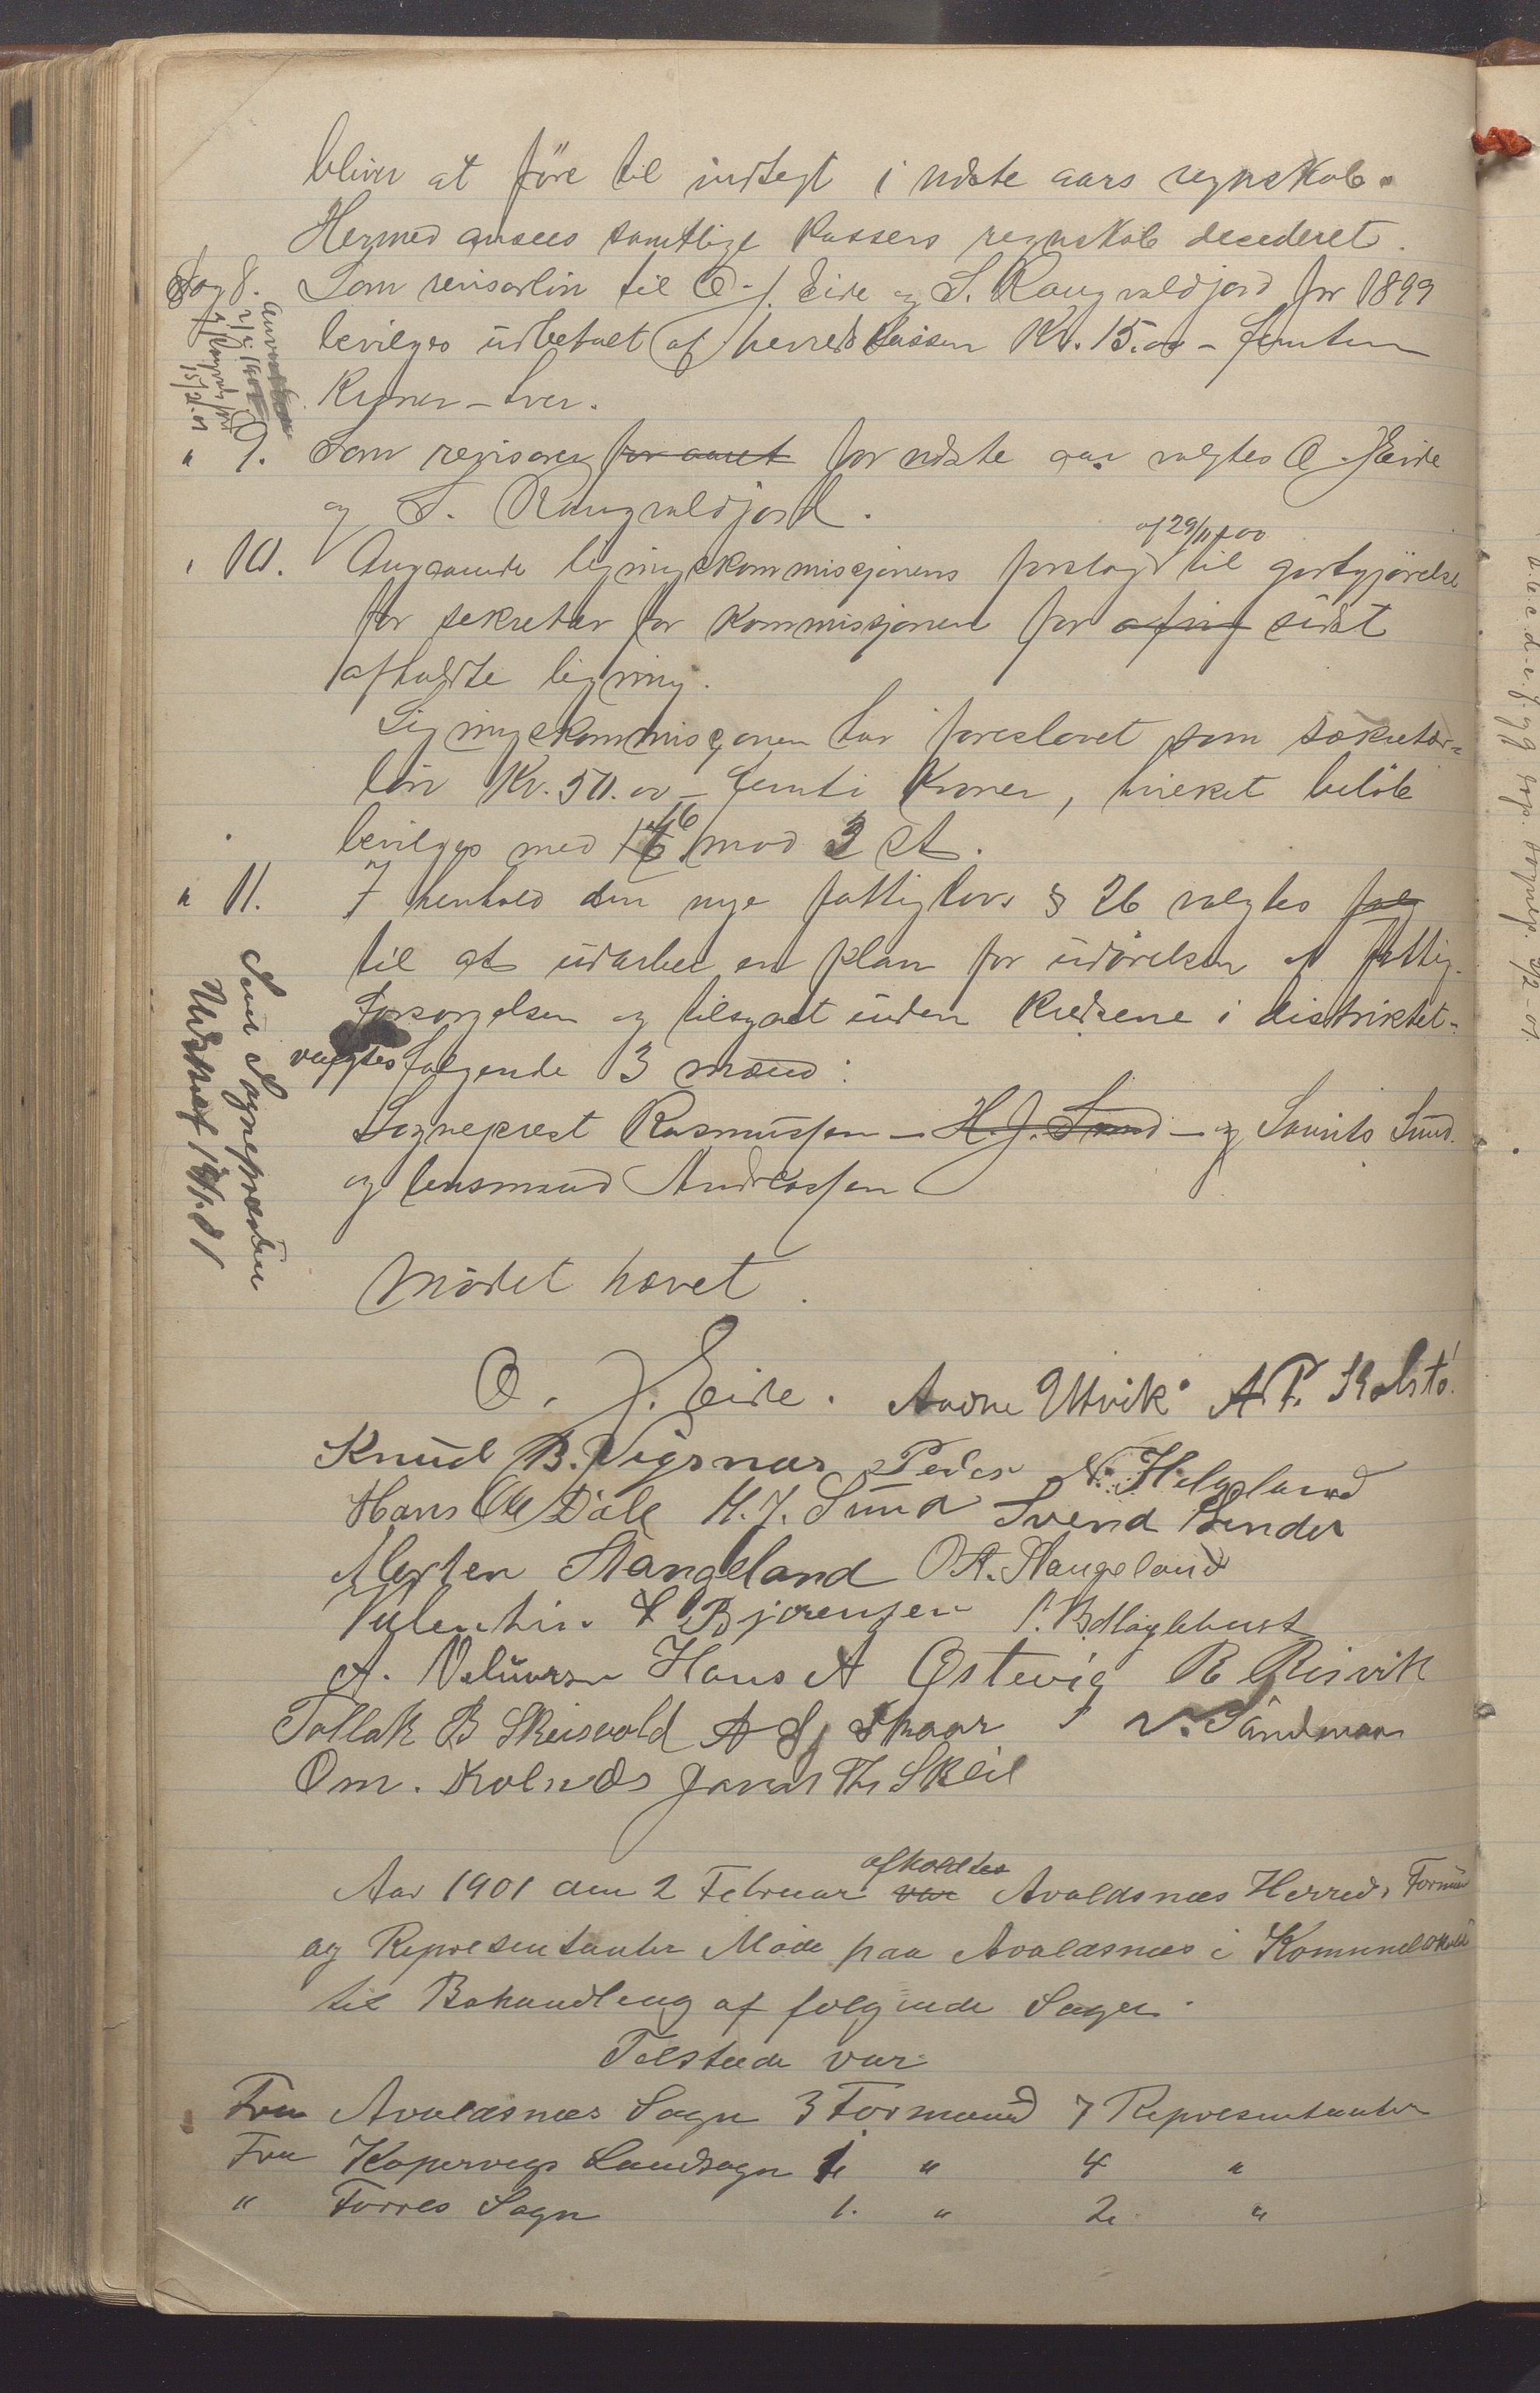 bliver at före til indtegt i næste aars regnskab.
Hermed ansees samtlige kassers regnskab decederet.
Sag 8. Som revisorlön til O. J. Eide og S. Rangvaldjord for 1899
bevilges udbetalt af herredskassen Kr. 15.00 - femten
Kroner - hver.
15/2 01
" 9. Som revisorer for aaret for næste aar valgtes O. J. Eide
og S. Rangvaldjord.
af 29/11 1900
" 10. Angaaende ligningskommissjonens forslag til godtgjörelse
for sekretær for kommissjonen for sidst
afholdte ligning.
Ligningskommisjonen har foreslaaet som sekretær-
lön Kr. 50.00 - femti Kroner, hvilket belöb
bevilges med 16 mod 3 st.
" 11. I henhold den nye fattiglovs § 26 valgtes
til at udarbeie en plan for udövelsen af fattig-
forsorgelsen og tilsynet inden kredsene i distriktet-
valgtes folgende 3 mænd:
Sogneprest Rasmussen - H. J. Sund - og Laurits Sund.
og lensmand Andreassen
Sent Sognepræsten
Udskrift
Mödet hævet.
O. J. Eide. Aadne Utvik A. P. Kolstö
Knud B. Vigsnæs Peder N. Helgeland
Hans Ole Dale H. J. Sund Svend Sender
Morten Stangeland O A. Stangeland
Valentin L Bjørensen
A. Hans A Østevig R Risvik
Tollak B Skeisvold A Sj Skaar V. Sandmann
O m. Kolnæs Jonas Th Skeie
afholdtes
Aar 1901 den 2 Februar var Avaldsnæs Herreds Formænd
og Representanter Møde paa Avaldsnæs i Komunelokale
til Behandling af følgende Sager.
Tilstæde var
Fra Avaldsnæs Sogn 3 Formænd 7 Representanter
Fra Kopervigs Landsogn 1 " 4 "
" Torres Sogn 1. " 2 "